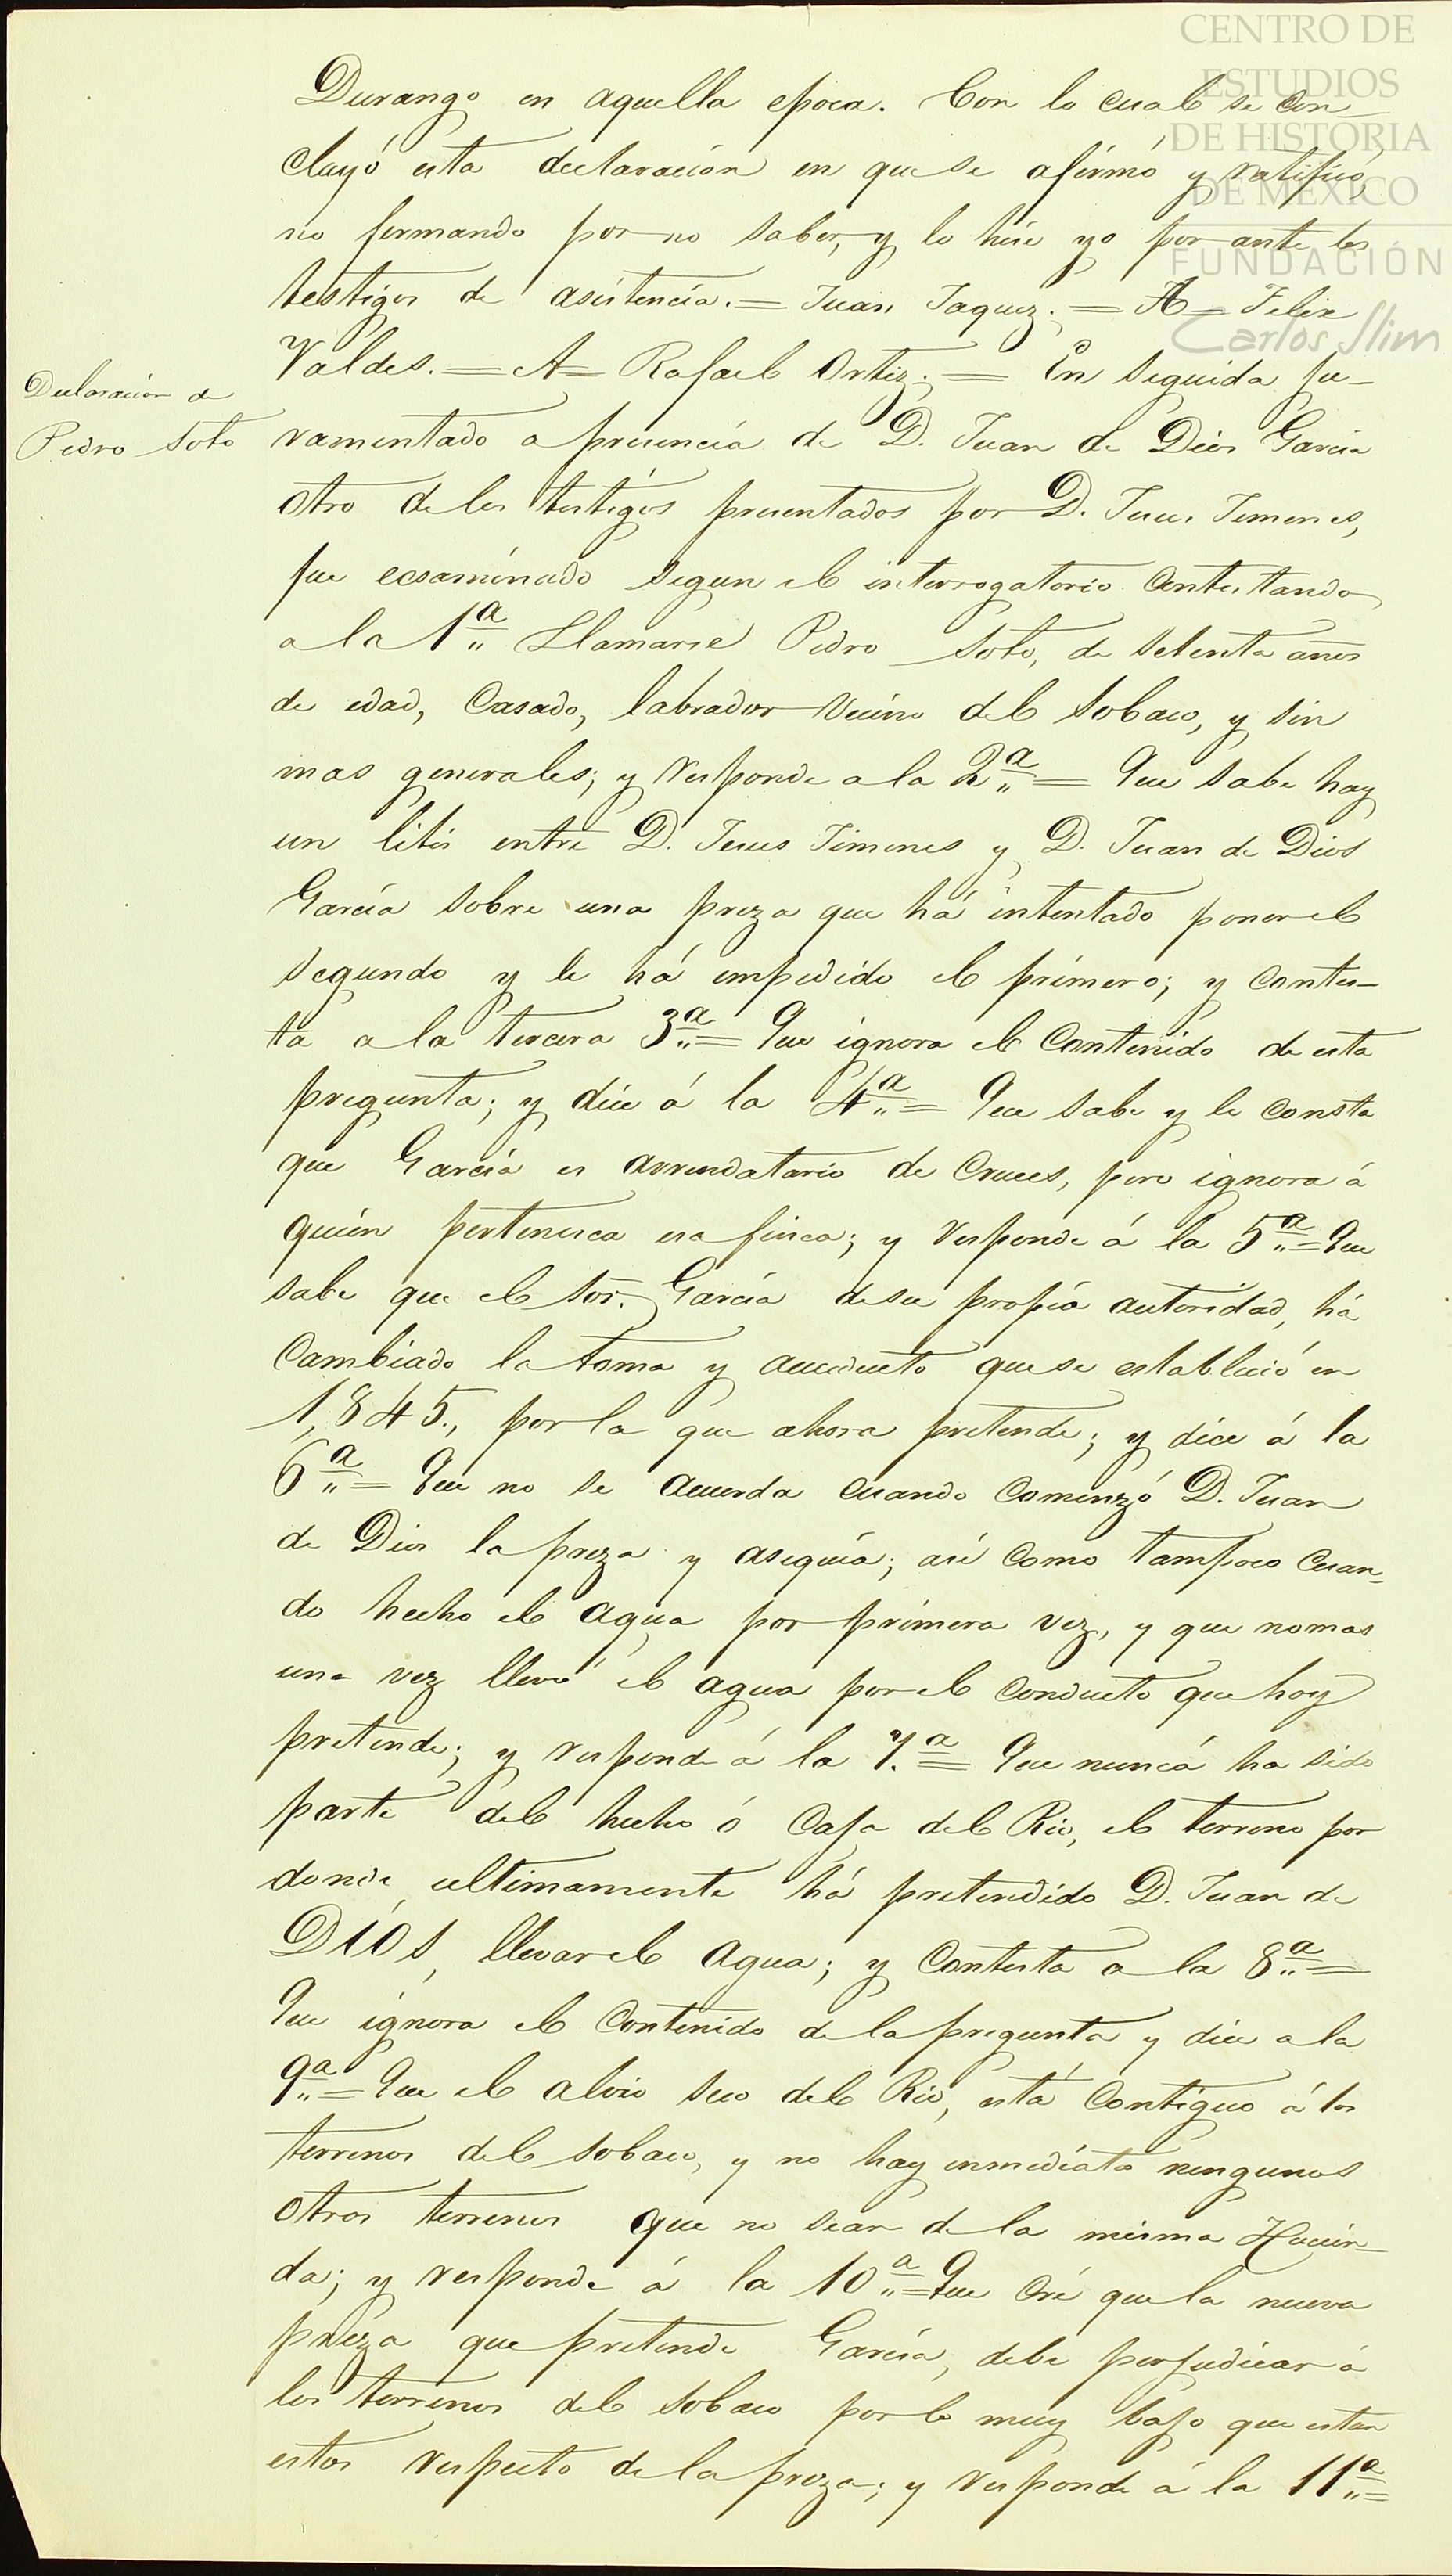 CENTRO DE
ESTUDIOS
DE HISTORIA
DE MÉXICO
FUNDACIÓN
Carlos Slim
Durango en aquella epoca. Con lo cual se con_
cluyó esta declaración en que se afirmó y ratificó,
no firmando por no saber, y lo hice yo por ante los
testigos de asistencia. = Juan Jaquez. = A = Felix
Valdes. = A = Rafael Ortiz. = En seguida ju_
Declaración de
Pedro Soto
ramentado a presencia de D. Juan de Dios Garcia
otro de los testigos presentados por D. Jesus Jimenes,
fue ecsaminado segun el interrogatorio contestando
a la 1ª Llamarse Pedro Soto, de setenta años
de edad, Casado, labrador vecino del Sobaco, y sin
mas generales; y responde a la 2ª = Que sabe hay
un litis entre D. Jesus Jimenes y D. Juan de Dios
García sobre una preza que há intentado poner el
segundo y le há impedido el primero; y contes_
ta a la tercera 3ª = Que ignora el contenido de esta
pregunta; y dice á la 4ª = Que sabe y le consta
que García es arrendatario de Cruces, pero ignora á
quién pertenesca esa finca; y responde á la 5ª = Que
sabe que el Sor. García de su propia autoridad, há
cambiado la toma y acueducto que se estableció en
1,845., por la que ahora pretende; y dice á la
6ª = Que no se acuerda cuando comenzó D. Juan
de Dios la preza y asequia; asi como tampoco cuan_
do hecho el agua por primera vez, y que nomas
una vez llevó el agua por el conducto que hoy
pretende; y responde á la 7.ª = Que nunca ha sido
parte del hecho ó Caja del Rio, el terreno por
donde ultimamente há pretendido D. Juan de
Dios, llevar el agua; y contesta a la 8ª =
Que ignora el contenido de la pregunta y dice a la
9ª = Que el alvio seco del Rio, está contiguo á los
terrenos del Sobaco, y no hay inmediato ningunos
otros terrenos que no sean de la misma Hacien_
da; y responde á la 10ª = Que cré que la nueva
preza que pretende García, debe perjudicar á
los terrenos del Sobaco por lo muy bajo que estan
estos respecto de la preza; y responde á la 11ª =